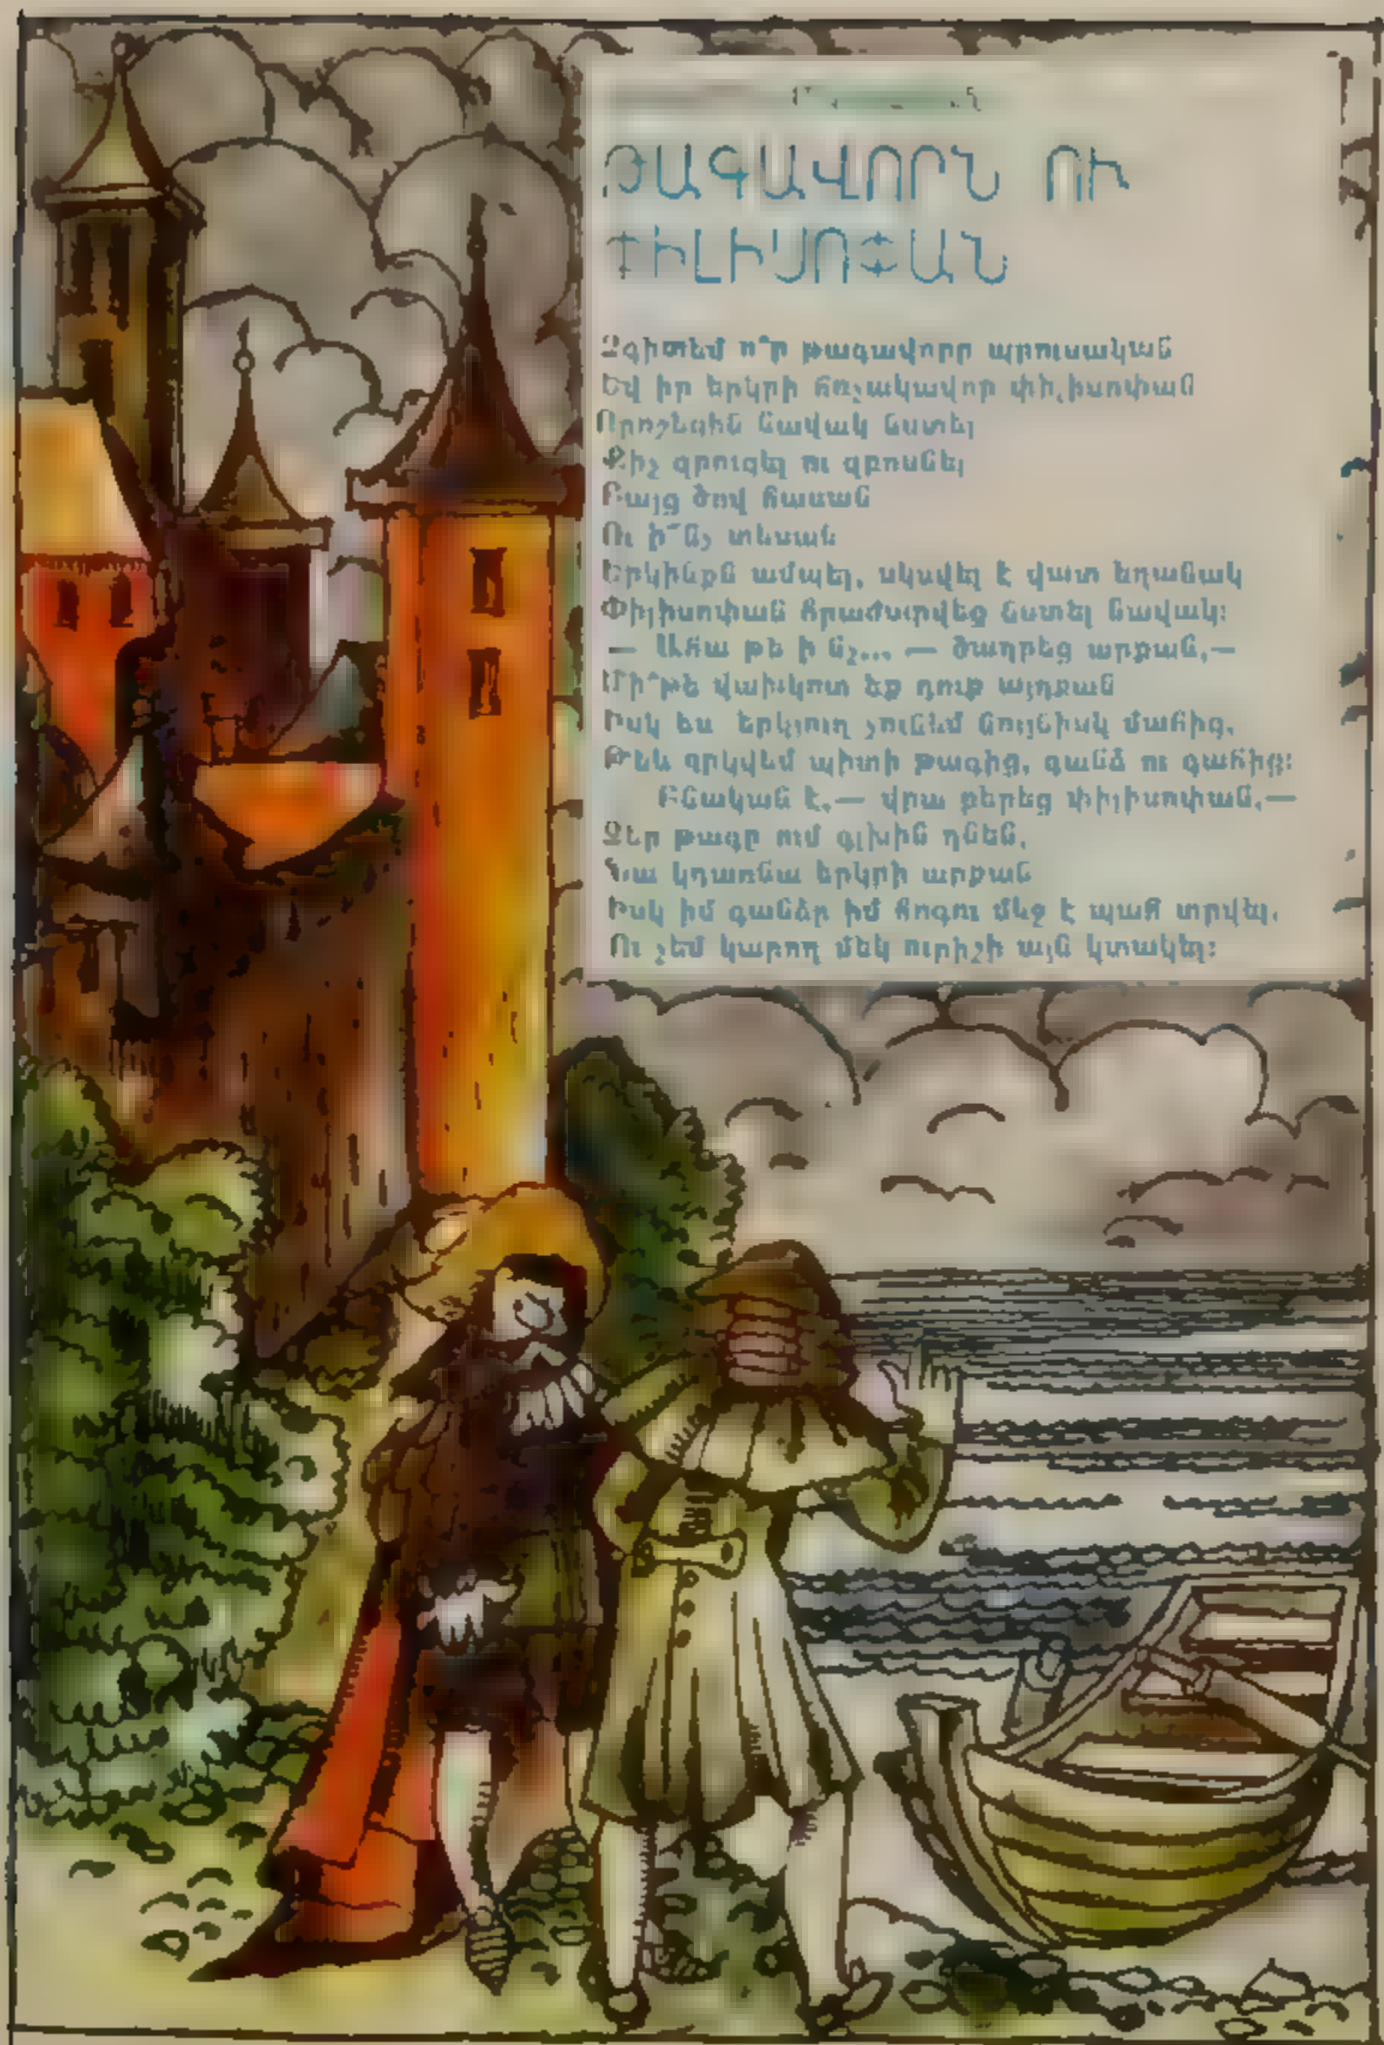 ԹԱԳԱՎՈՐՆ ՈՒ
ՓԻԼԻՍՈՓԱՆ
Չգիտեմ ո՞ր թագավորը պրուսական
Եվ իր երկրի հռչակավոր փիլիսոփան
Որոշեցին նավակ նստել
Քիչ զբոսնել
Բայց ծով հասան
Ու ի՞նչ տեսան
Երկինքն ամպել, սկսվել է վատ եղանակ
Փիլիսոփան հրաժարվեց նստել նավակ։
— Ահա թե ի նչ... — ծաղրեց արքան,—
Մի՞թե վախկոտ եք դուք այդքան
Իսկ ես երկյուղ չունեմ նույնիսկ մահից,
Թեև զրկվեմ պիտի թագից, գանձ ու գահից։
Բնական է,— վրա բերեց փիլիսոփան,—
Ձեր թագը ում գլխին դնեն,
Նա կդառնա երկրի արքան
Իսկ իմ գանձը իմ հոգու մեջ է պահ տրվել,
Ու չեմ կարող մեկ ուրիշի այն կտակել։